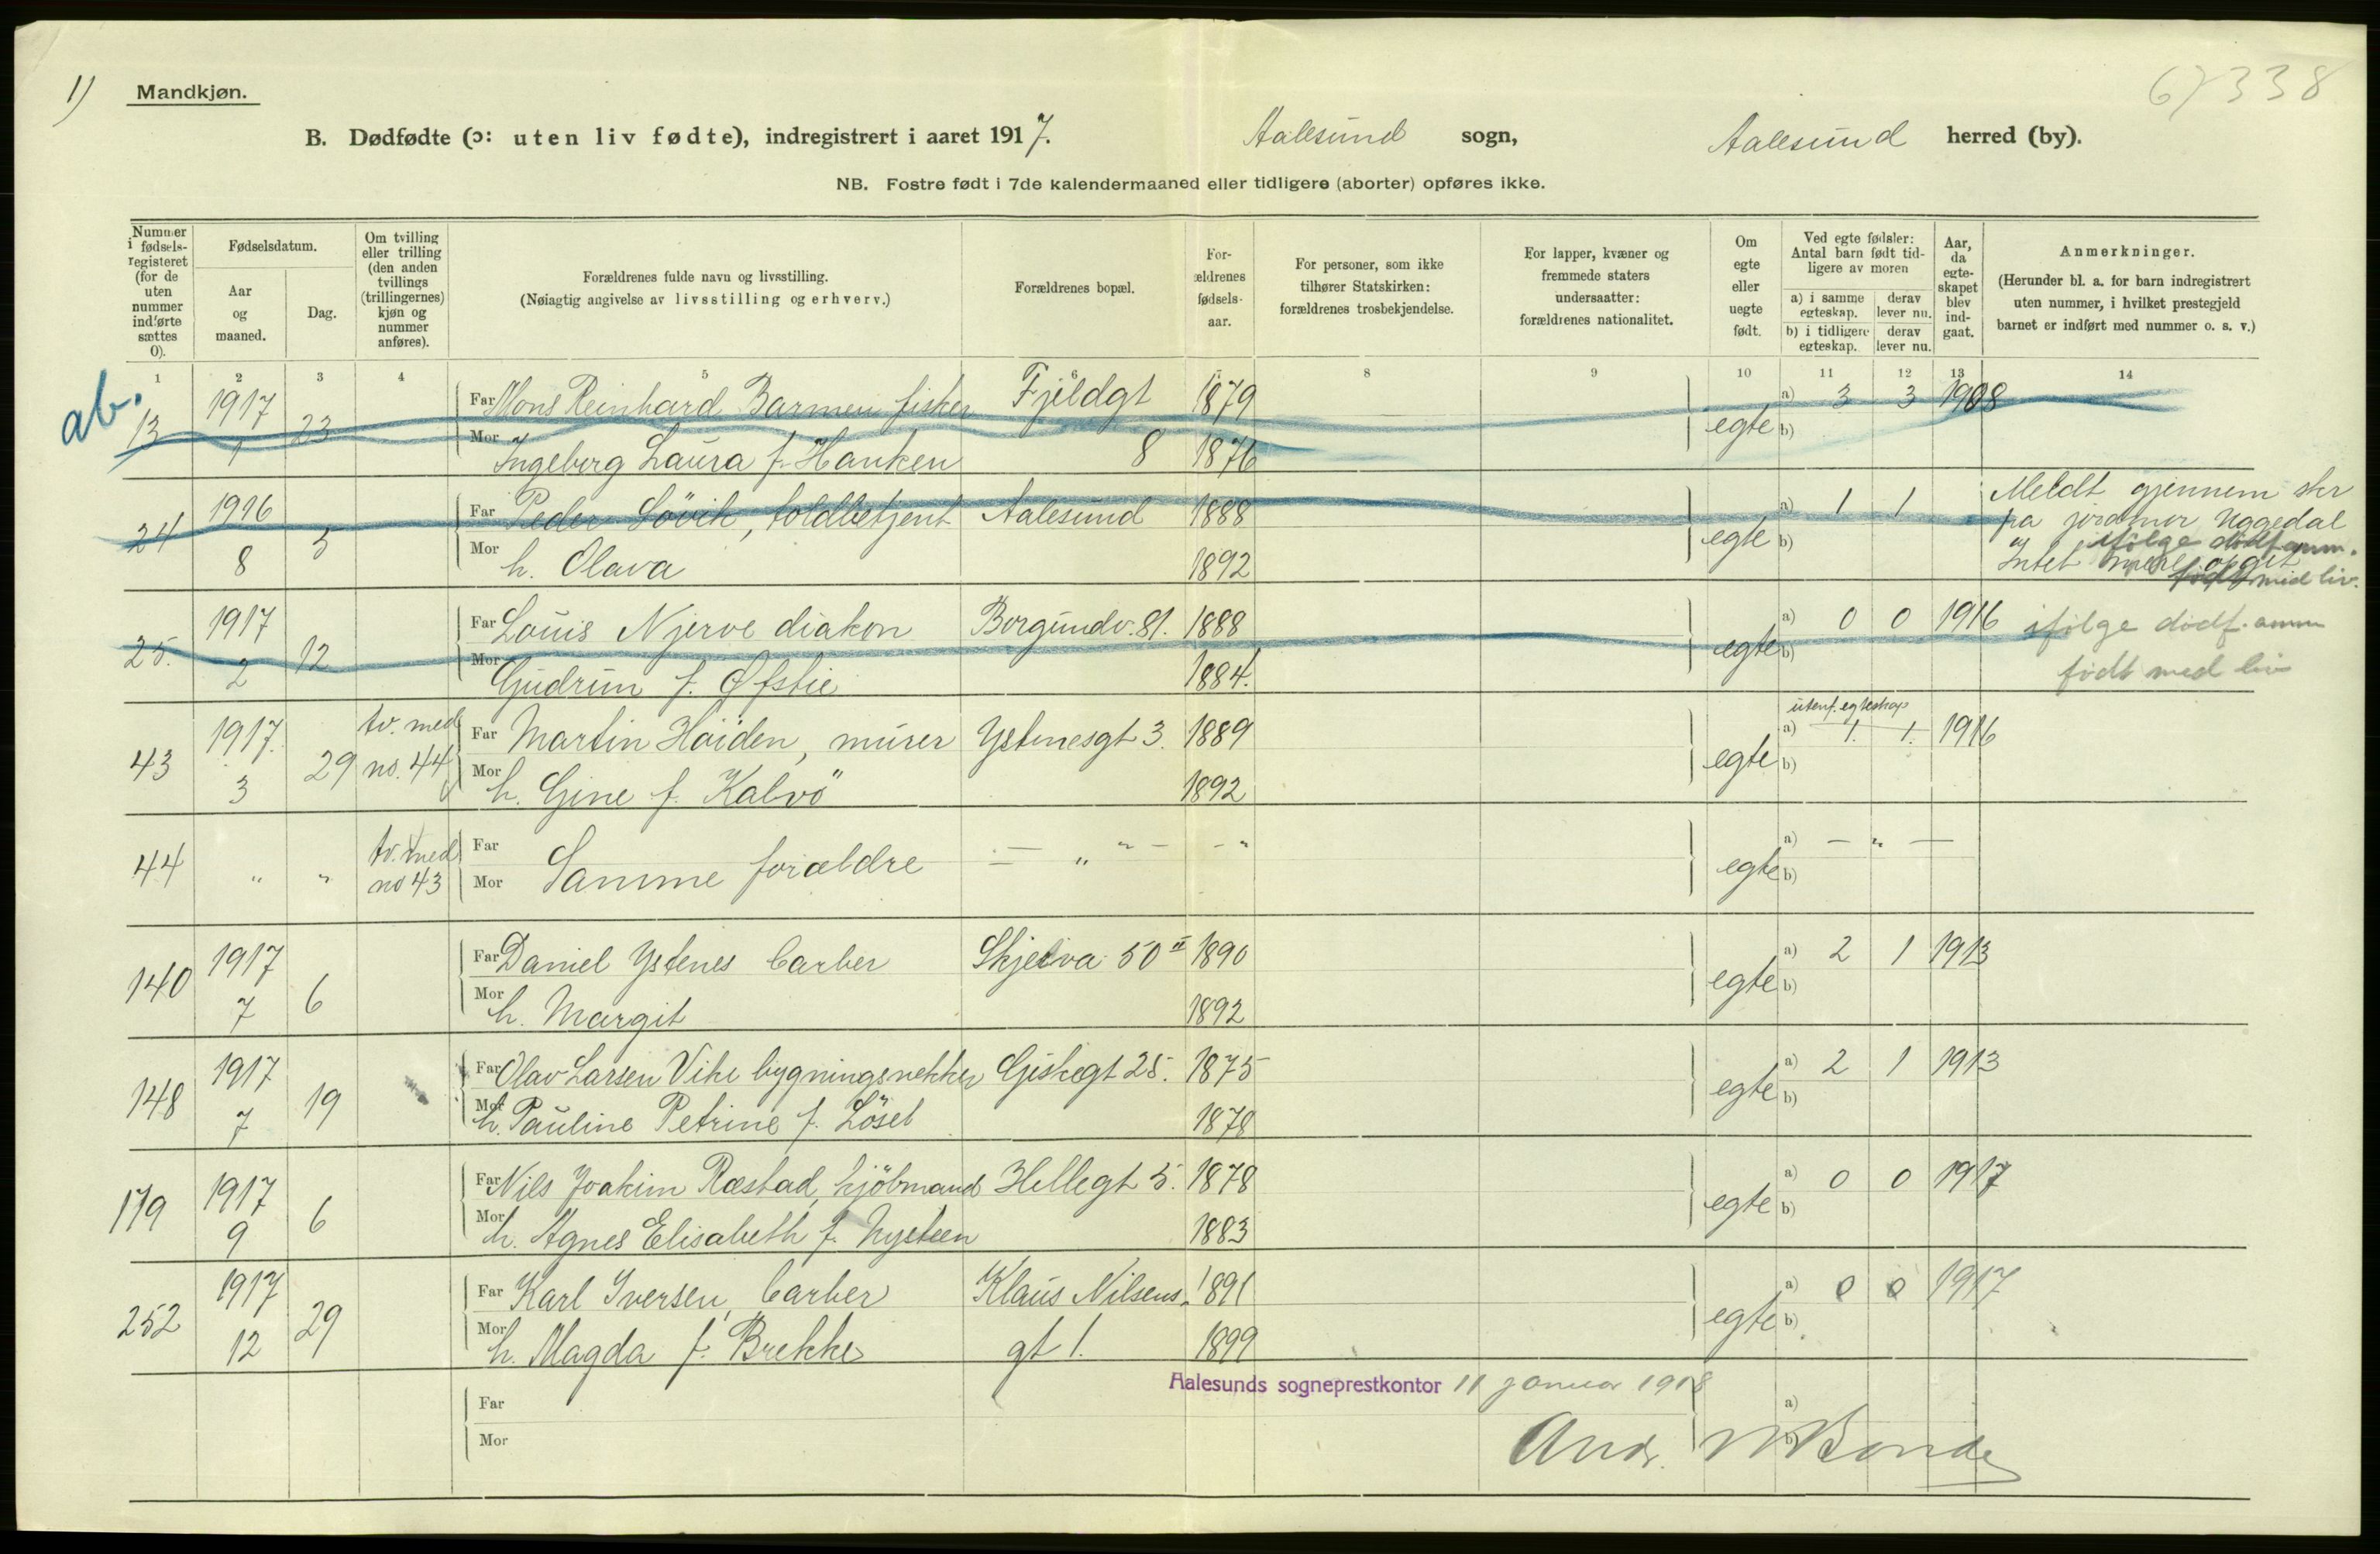 1)
Mandkjøn.
6) 338
B. Dødfødte (ɔ: uten liv fødte), indregistrert i aaret 1917.
Aalesund sogn,
Aalesund herred (by).
NB. Fostre født i 7de kalendermaaned eller tidligere (aborter) opføres ikke.
Nummer i fødsels-registeret (for de uten nummer indførte sættes 0).
Fødselsdatum.
Aar og maaned.
Dag.
Om tvilling eller trilling (den anden tvillings (trillingernes) kjøn og nummer anføres).
Forældrenes fulde navn og livsstilling.
(Nøiagtig angivelse av livsstilling og erhverv.)
Forældrenes bopæl.
For-ældrenes fødsels-aar.
For personer, som ikke tilhører Statskirken: forældrenes trosbekjendelse.
For lapper, kvæner og fremmede staters undersaatter: forældrenes nationalitet.
Om egte eller uegte født.
Ved egte fødsler: Antal barn født tid-ligere av moren
a) i samme egteskap. derav lever nu.
b) i tidligere egteskap. derav lever nu.
Aar, da egte-skapet blev ind-gaat.
Anmerkninger.
(Herunder bl. a. for barn indregistrert uten nummer, i hvilket prestegjeld barnet er indført med nummer o. s. v.)
1 2 3 4 5 6 8 9 10 11 12 13 14
ab.
13 1917 1 23 Far Mons Reinhard Barmen fisker Fjeldgt 1879 egte a) 3 3 1908
Mor Ingeborg Laura f. Hanken 8 1876 b)
24 1916 8 5 Far Peder Lövik, toldbetjent Aalesund 1888 egte a) 1 1 Meldt gjennem skr
Mor h. Olava 1892 b) fra jordmor Uggedal
og ifølge dødf.anm.
Intet mere opgit
født med liv.
25. 1917 2 12 Far Louis Njerve diakon Borgundv. 81. 1888 egte a) 0 0 1916 ifølge dödf. anm
Mor Gudrun f. Øfstie 1884. b) født med liv
43 1917. 3 29 tv. med no. 44 Far Martin Höiden, murer Ystenesgt 3. 1889 egte utenf. egteskap a) 1. 1. 1916
Mor h. Gine f. Kalvö 1892 b)
44 " " tv. med no 43 Far Mor Samme forældre — " " — - " egte a) — " — b)
140 1917 7 6 Far Daniel Ystenes barber Skjelva 50 II 1890 egte a) 2 1 1913
Mor h. Margit 1892 b)
148 1917 7 19 Far Olav Larsen Vike bygningsnekker Giskegt 25. 1875 egte a) 2 1 1913
Mor h. Pauline Petrine f. Löset 1878 b)
179 1917 9 6 Far Nils Joakim Ræstad, kjöbmand Hellegt 5. 1878 egte a) 0 0 1917
Mor h. Agnes Elisabeth f. Nysteen 1883 b)
252 1917 12 29 Far Karl Iversen, barber Klaus Nilsens 1891 egte a) 0 0 1917
Mor h. Magda f. Brekke gt 1. 1899 b)
Aalesunds sogneprestkontor 11 januar 1918
Far a)
Mor b)
Andr. Bonde